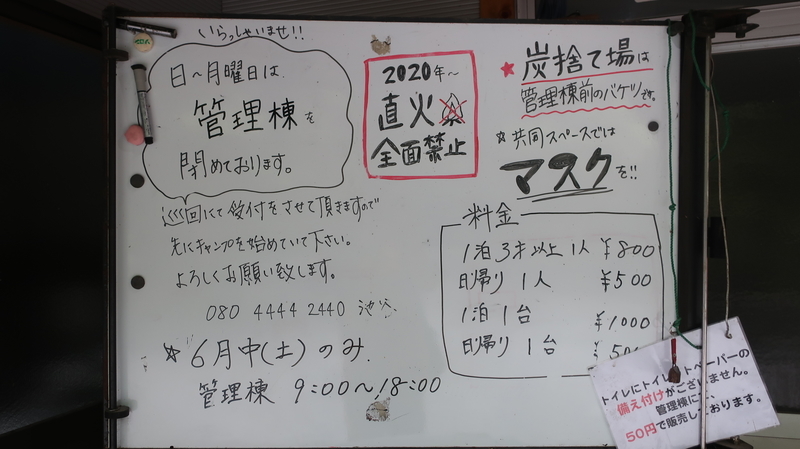 いらっしゃいませ!!
日〜月曜日は
管理棟を
閉めております。
巡回にて受付をさせて頂きますので
先にキャンプを始めていて下さい。
よろしくお願い致します。
080 4444 2440 池谷
☆6月中(土)のみ
管理棟 9:00〜18:00
2020年〜
直火
全面禁止
★炭捨て場は
管理棟前のバケツです。
☆共同スペースでは
マスクを!!
料金
1泊3才以上1人 ¥800
日帰り1人 ¥500
1泊1台 ¥1000
日帰り1台 ¥50
トイレにトイレットペーパーの
備え付けがございません。
管理棟にて、
50円で販売しております。